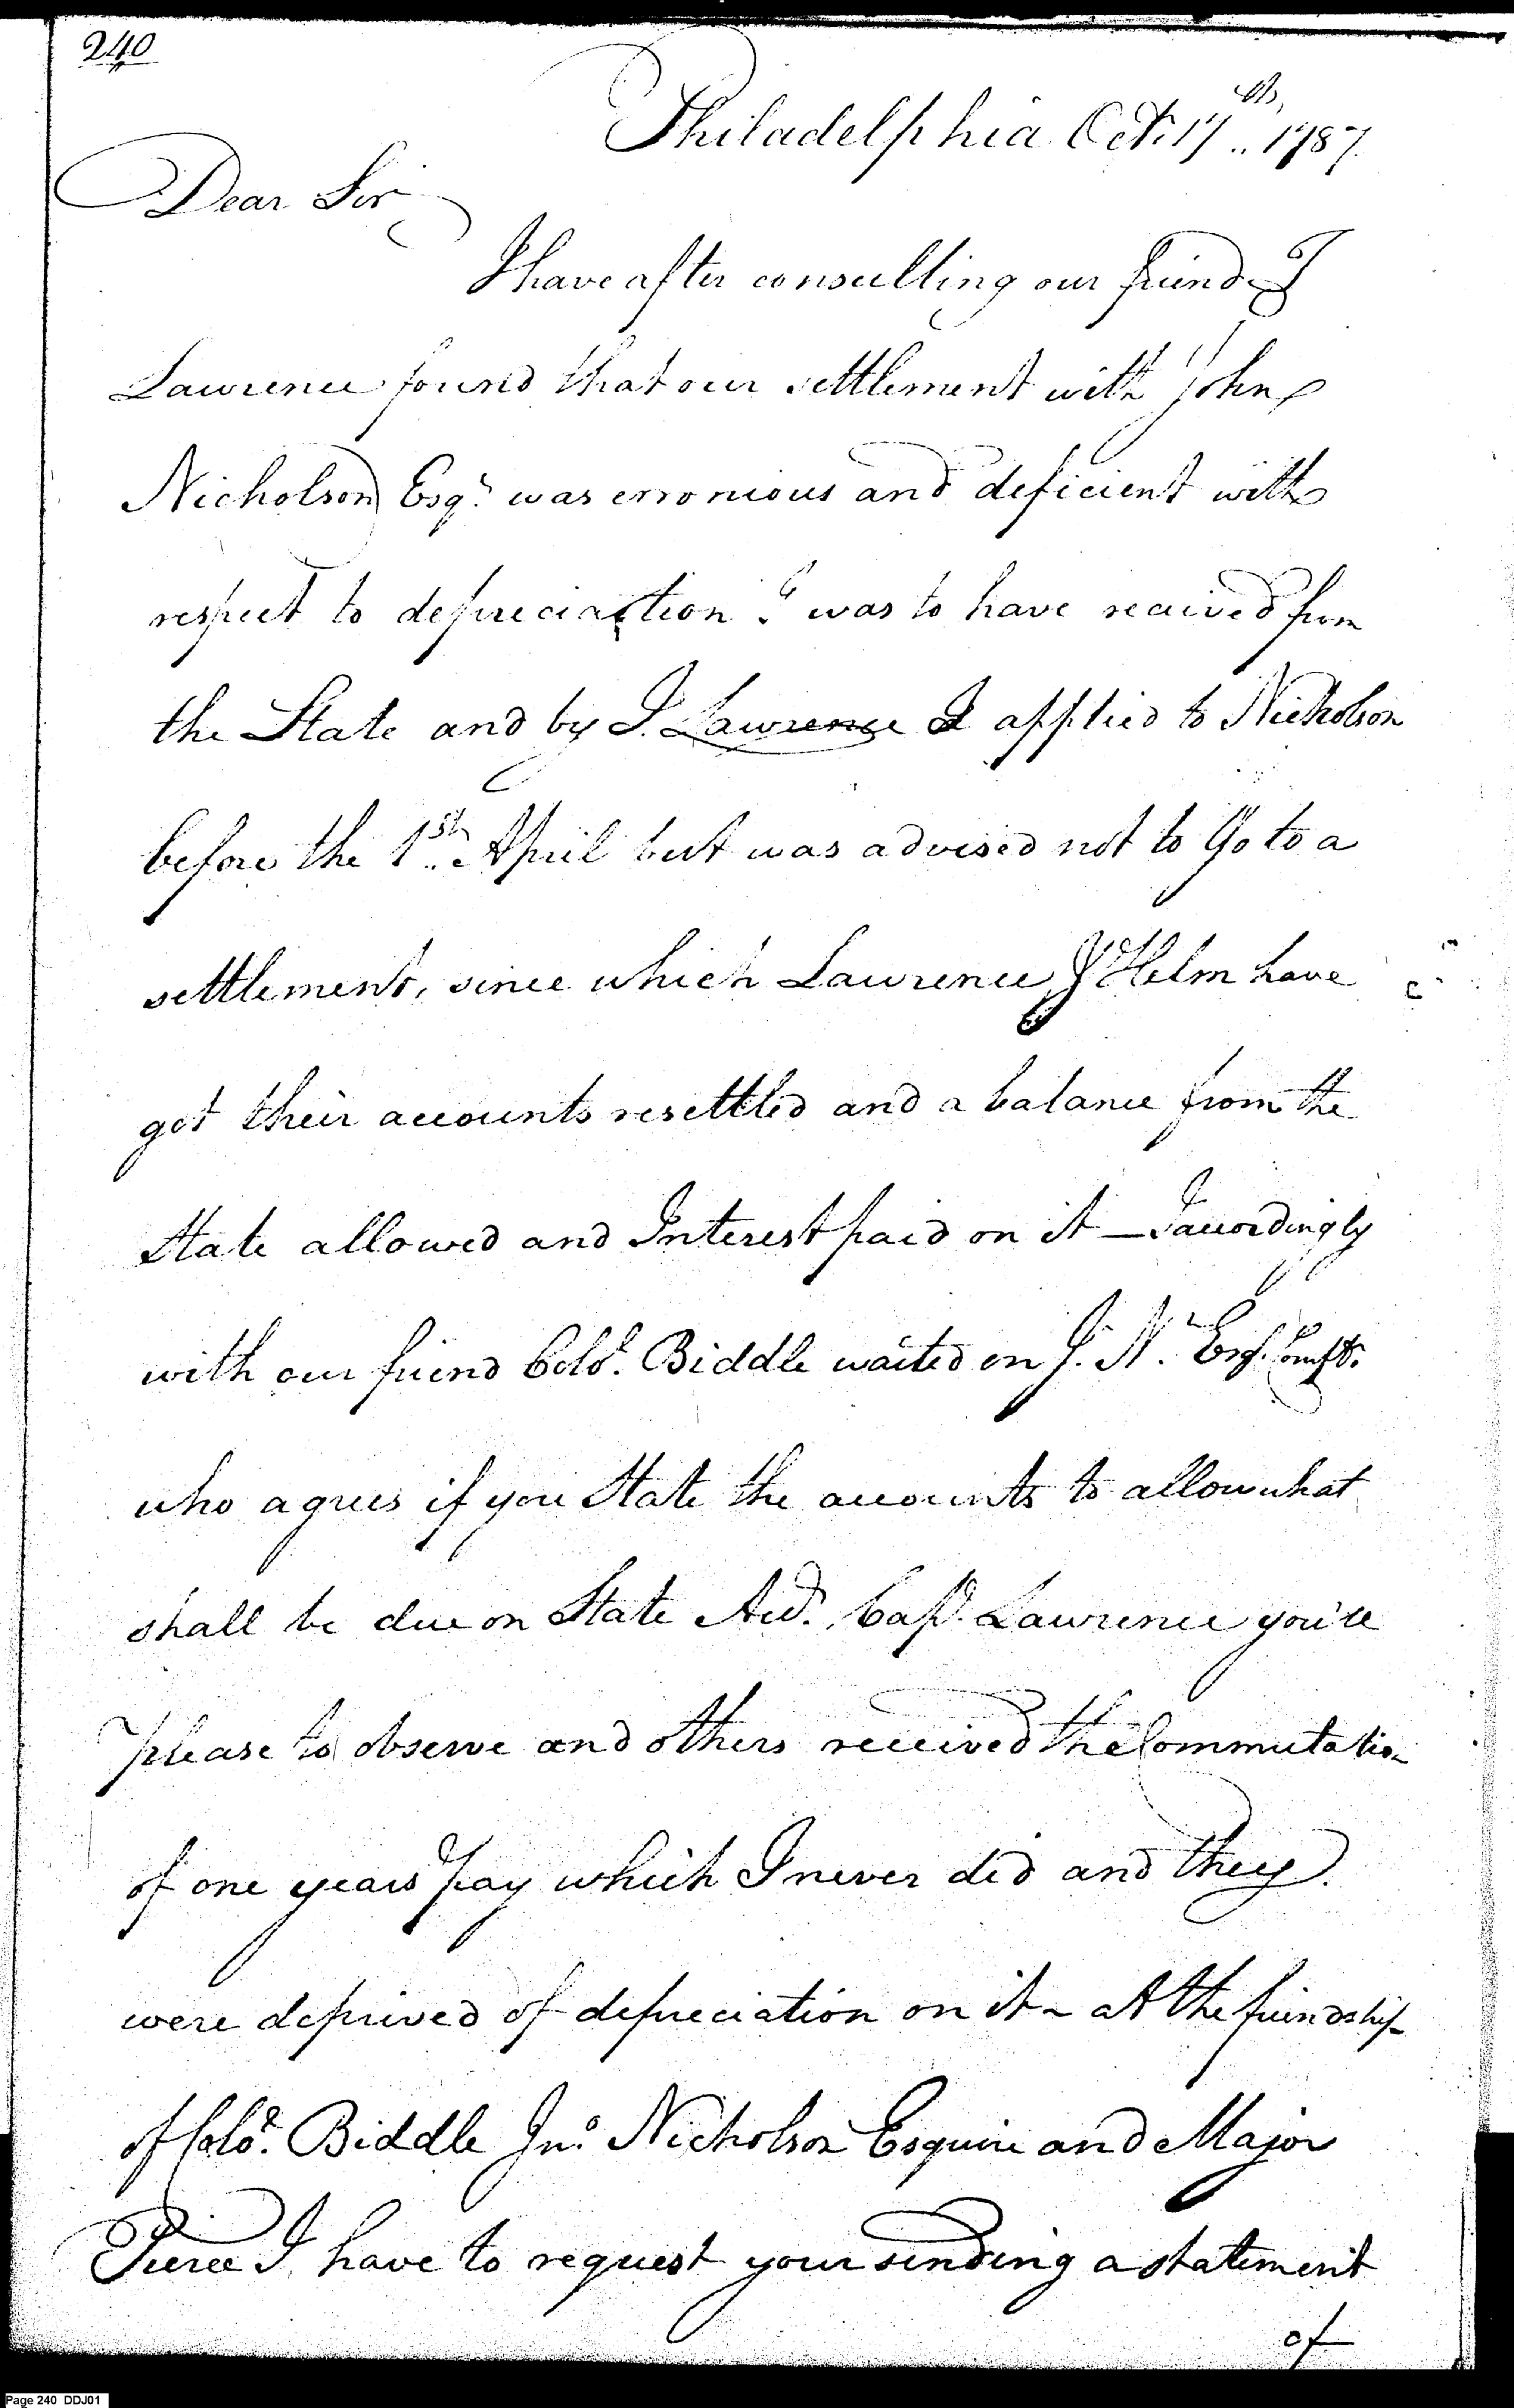 240
Philadelphia Oct. 17th, 1787.
Dear Sir
I have after consulting our friend J
Lawrence found that our settlement with John
Nicholson Esqr. was erronious and deficient with
respect to depreciaction I was to have recaived from
the State and by J. Lawrence I applied to Nicholson
before the 1st. April but was advised not to Go to a
settlement, since which Lawrence & Helm have
got their accounts resettled and a balance from the
State allowed and Interest paid on it — I accordingly
with our friend Colo. Biddle waited on J. N. Esqr. Compt.
who agrees if you State the accounts to allow what
shall be due on State Acct. Capt. Lawrence you'll
please to observe and others received the Commutation
of one years pay which I never did and they
were deprived of depreciation on it - At the friendship
of Colo. Biddle Jno. Nicholson Esquire and Major
Pierce I have to request your sending a statement
of
Page 240 DDJ01